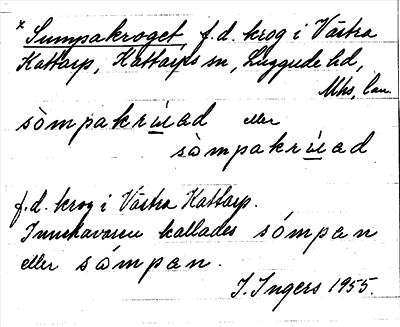 * Sumpakroget, f.d. krog i Västra
Kattarp, Kattarps sn, Luggude hd,
Mhs, län.
sòmpakrúad eller
sòmpakrúad
f.d. krog i Västra Kattarp.
Innehavaren kallades sómpan
eller sámpæn.
I. Ingers 1955.